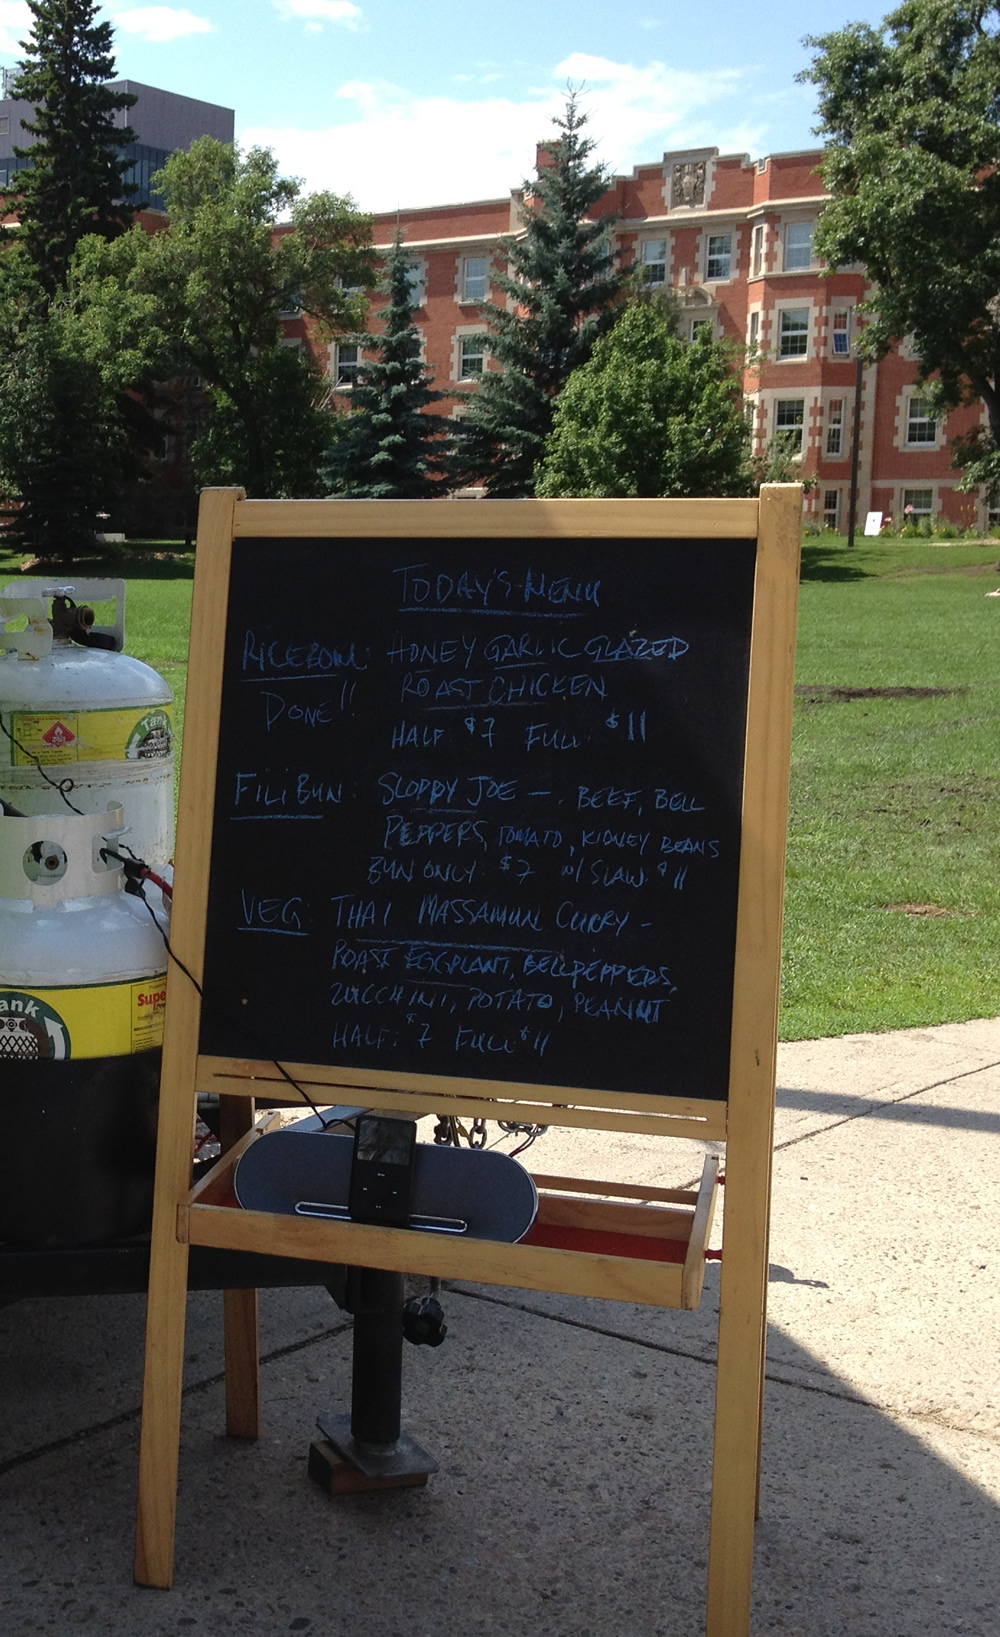 TODAY'S MENU
RICEBOWL: HONEY GARLIC GLAZED
DONE!! ROAST CHICKEN
HALF $7 FULL: $11
FILIBUN: SLOPPY JOE — BEEF, BELL
PEPPERS, TOMATO, KIDNEY BEANS
BUN ONLY: $7 w/ SLAW: $11
VEG: THAI MASSAMUN CURRY -
ROAST EGGPLANT, BELL PEPPERS,
ZUCCHINI, POTATO, PEANUT
HALF: $7 FULL: $11
Tank
Tank